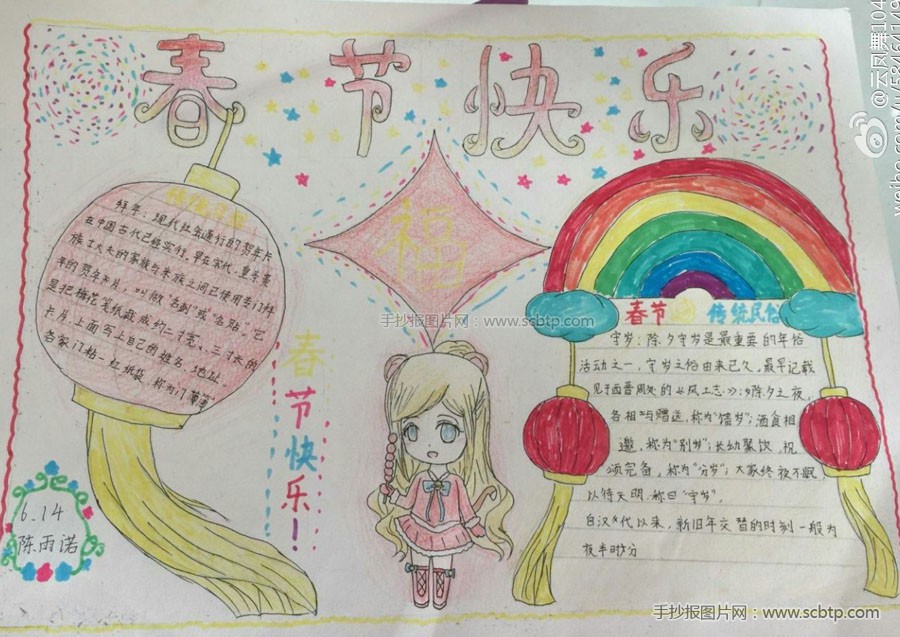 春节快乐
拜年：现代社会通行的贺年片
在中国古代已经实行，早在宋代，皇亲豪
族士大夫的家族与亲族之间已使用专门拜
年的贺年片，叫做"名刺"或"名贴"它
是把梅花笺纸裁成约二寸宽，三寸长的
卡片，上面写上自己的姓名、地址
各家门粘一红纸袋，称为"门簿
福
春节快乐！
春节的传统民俗
守岁：除夕守岁是最重要的年俗
活动之一，守岁之俗由来已久，最早记载
见于西晋周处的《风土志》：除夕之夜，
各相与赠送，称为"馈岁"；酒食相
邀，称为"别岁"；长幼聚饮，祝
颂完备，称为"分岁"；大家终夜不眠，
以待天明，称曰"守岁"。
自汉代以来，新旧年交替的时刻一般为
夜半时分
6.14
陈雨诺
手抄报图片网：www.scbtp.com
手抄报图片网：www.scbtp.com
@云凤舞104